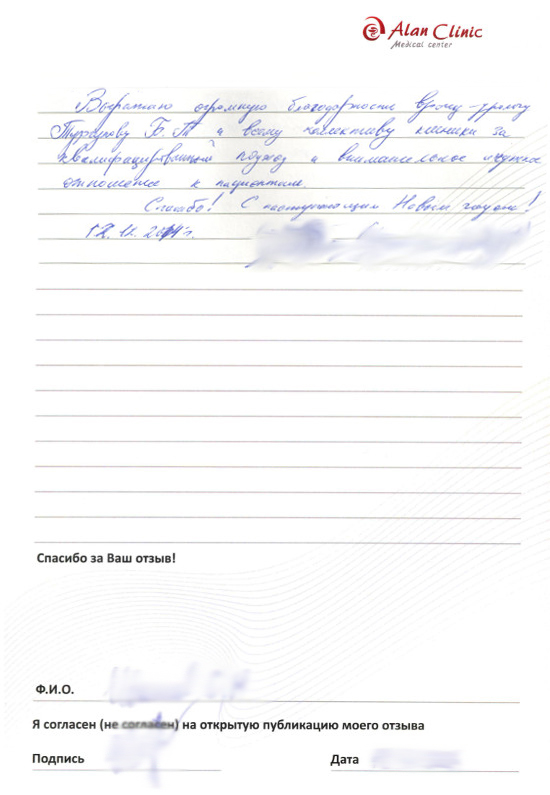 Alan Clinic
Medical center
Выражаю огромную благодарность врачу-урологу
Турсунову Б. Т. и всему коллективу клиники за
квалифицированный подход и внимательное чуткое
отношение к пациентам.
Спасибо! С наступающим Новым годом!
12.12.2014г.
Спасибо за Ваш отзыв!
Ф.И.О.
Я согласен (не согласен) на открытую публикацию моего отзыва
Подпись
Дата